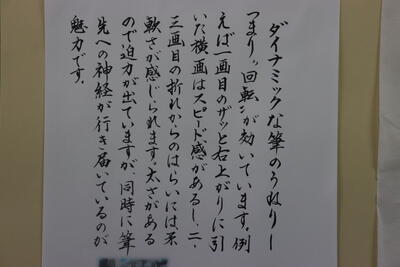 ダイナミックな筆のうねり—
つまり〝回転〟が効いています。例
えば一画目のザッと右上がりに引
いた横画はスピード感があるし、二・
三画目の折れからのはらいには柔
軟さが感じられます。太さがある
ので迫力が出ていますが、同時に筆
先への神経が行き届いているのが
魅力です。